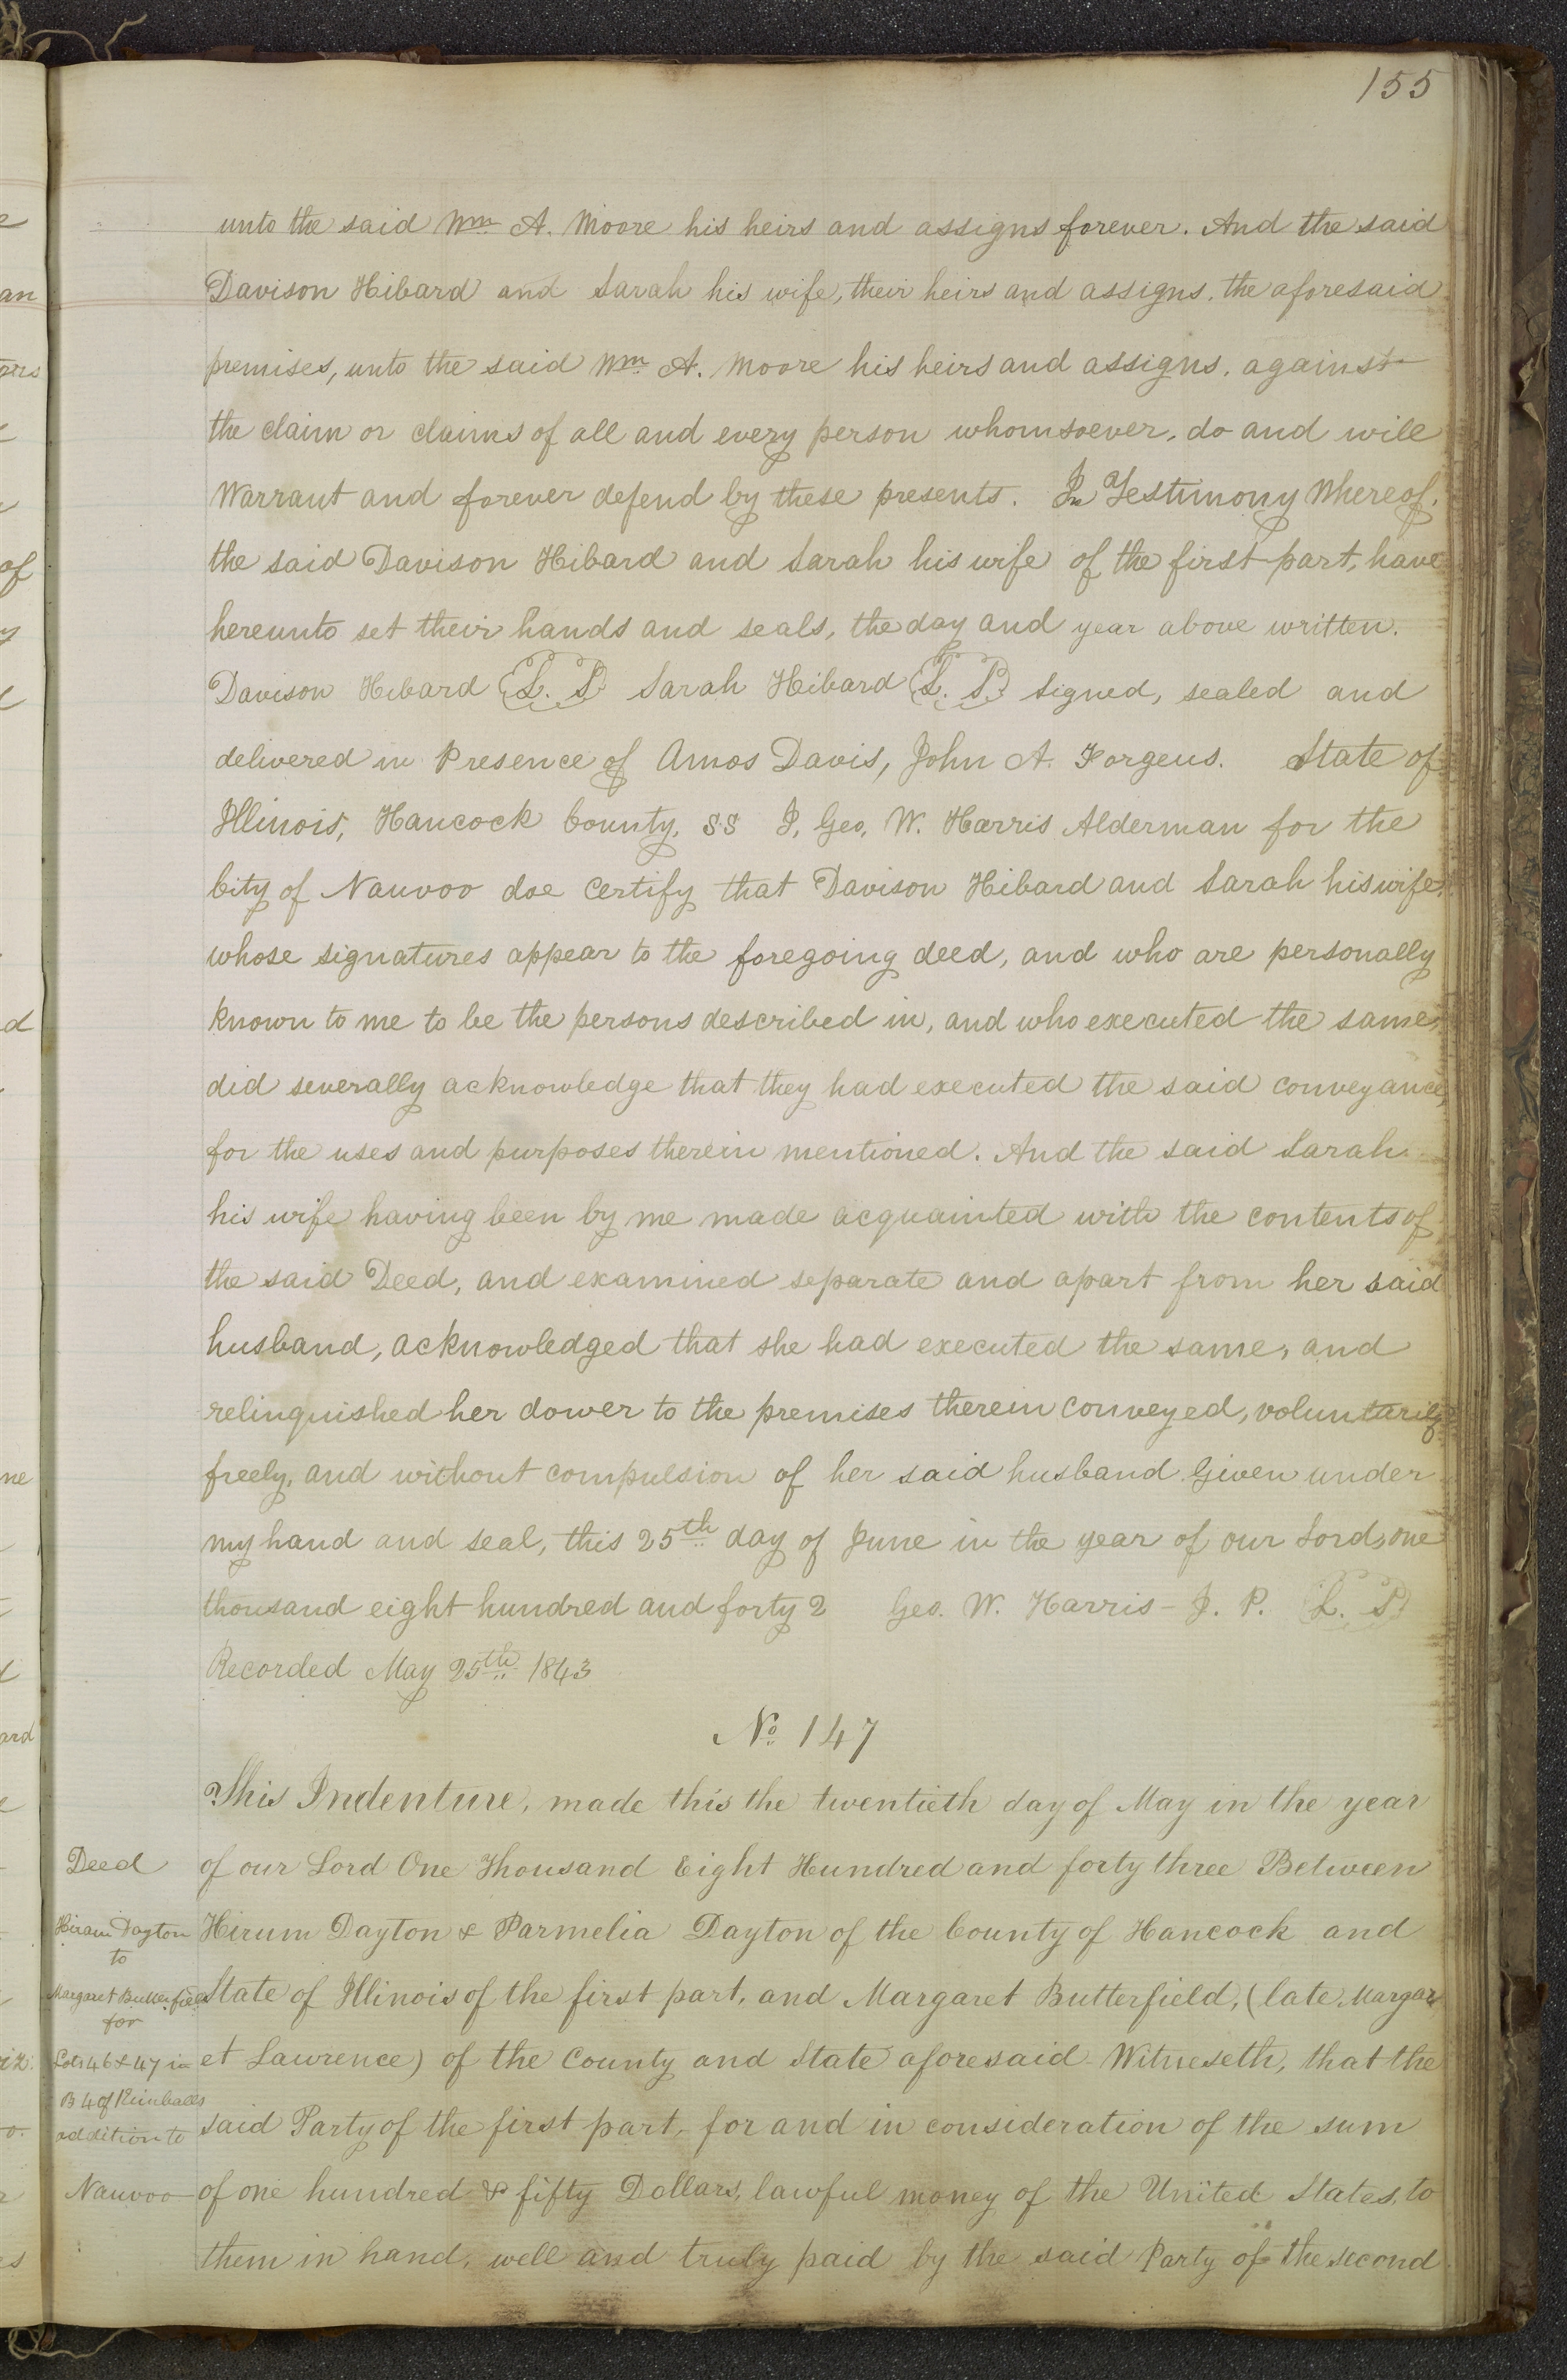 155
unto the said Wm A. Moore his heirs and assigns forever. And the said
Davison Hibard and Sarah his wife, their heirs and assigns, the aforesaid
premises, unto the said Wm A. Moore his heirs and assigns, against
the claim or claims of all and every person whomsoever, do and will
Warrant and forever defend by these presents. In Testimony Whereof,
the said Davison Hibard and Sarah his wife of the first part, have
hereunto set their hands and seals, the day and year above written.
Davison Hibard L. S. Sarah Hibard L. S. Signed, sealed and
delivered in Presence of Amos Davis, John A. Forgeus. State of
Illinois, Hancock County, SS I, Geo. W. Harris Alderman for the
City of Nauvoo doe Certify that Davison Hibard and Sarah his wife,
whose signatures appear to the foregoing deed, and who are personally
known to me to be the persons described in, and who executed the same,
did severally acknowledge that they had executed the said conveyance,
for the uses and purposes therein mentioned. And the said Sarah
his wife having been by me made acquainted with the contents of
the said Deed, and examined separate and apart from her said
husband, acknowledged that she had executed the same, and
relinquished her dower to the premises therein conveyed, voluntarily
freely, and without compulsion of her said husband Given under
my hand and seal, this 25th day of June in the year of our Lord, one
thousand eight hundred and forty 2 Geo. W. Harris - J. P. L. S.
Recorded May 25th 1843
No 147
This Indenture, made this the twentieth day of May in the year
Deed
of our Lord One Thousand Eight Hundred and forty three Between
Hiram Dayton
Hirum Dayton & Parmelia Dayton of the County of Hancock and
to
Margaret Butterfield
State of Illinois of the first part, and Margaret Butterfield, (late Margar
for
Lots 46 & 47 in
et Lawrence) of the County and State aforesaid Witneseth, that the
B 4 of Kimballs
said Party of the first part, for and in consideration of the sum
addition to
Nauvoo
of one hundred & fifty Dollars, lawful money of the United States, to
them in hand, well and truly paid by the said Party of the second